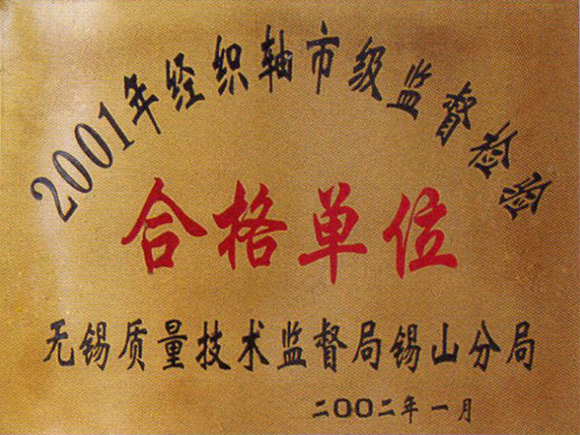 2001年经织轴市级监督检验
合格单位
无锡质量技术监督局锡山分局
二00二年一月